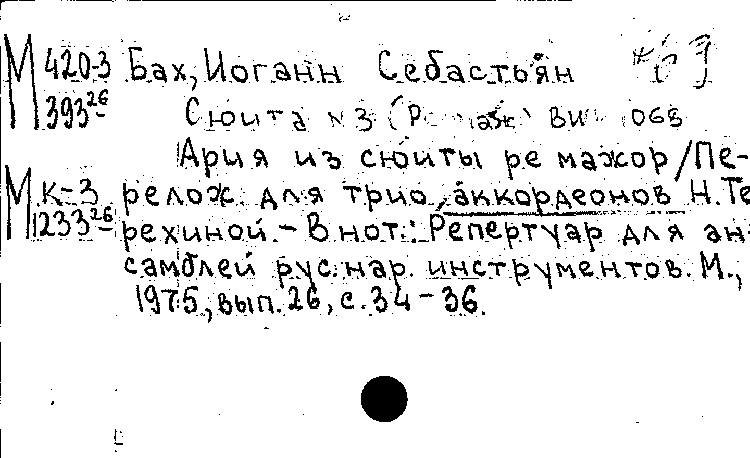 М 420-3 Бах, Иоганн Себастьян
393 26 Сюита №3 (Ре маж) 1068
Ария из сюиты ре мажор/Пе-
М К-3 релож. для трио аккордеонов Н.Те
1233 26 рехиной.-В нот.: Репертуар для ан-
самблей рус.нар. инструментов. М.,
1975, вып. 26, с. 34-36.